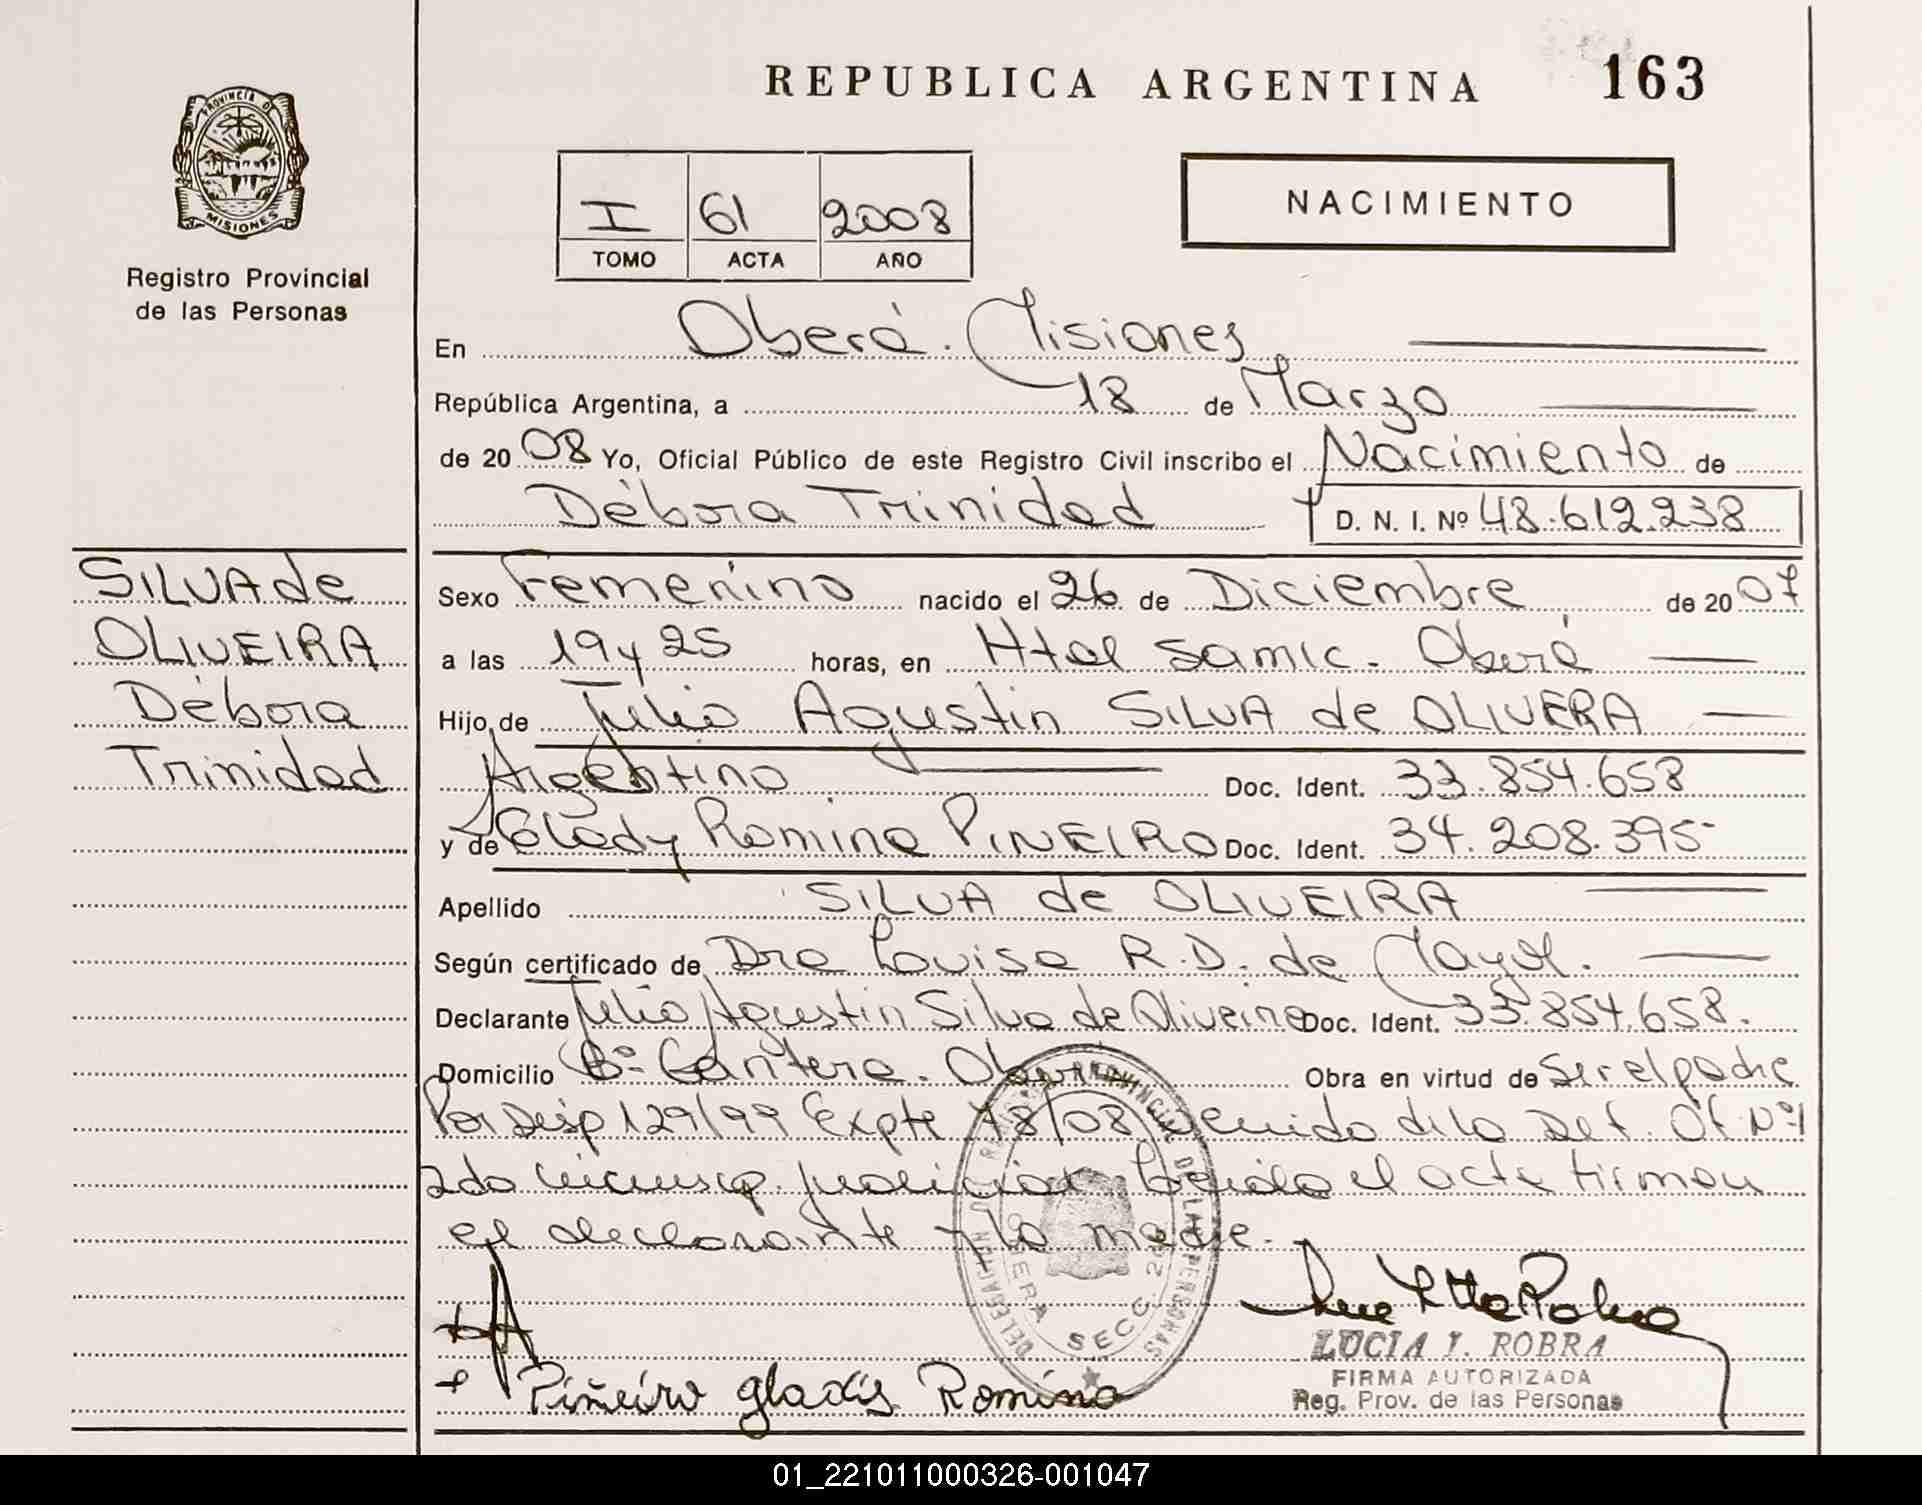 REPUBLICA ARGENTINA 163
PROVINCIA DE
MISIONES
Registro Provincial
de las Personas
I 61 2008
TOMO ACTA AÑO
NACIMIENTO
En Oberá. Misiones
República Argentina, a 18 de Marzo
de 2008 Yo, Oficial Público de este Registro Civil inscribo el Nacimiento de
Débora Trinidad D. N. I. Nº 48.612.238
SILVA de
OLIVEIRA
Débora
Trinidad
Sexo Femenino nacido el 26 de Diciembre de 2007
a las 19 y 25 horas, en Htal Samic. Oberá
Hijo de Julio Agustin SILVA de OLIVERA
Argentino Doc. Ident. 33.854.658
y de Glady Romina PINEIRO Doc. Ident. 34.208.395
Apellido SILVA de OLIVEIRA
Según certificado de Dra Louisa R.D. de Mayol.
Declarante Julio Agustin Silva de Oliveira Doc. Ident. 33.854.658.
Domicilio Bº Cantera. Oberá Obra en virtud de Ser el padre
Por Desp 129/99 Expte 78/08 de la Def. Of. Nº1
2da judicial el acta firman
el declarante y la madre.
DELEGACION REGISTRO PROVINCIAL DE LAS PERSONAS
OBERA SECC. 2
LUCIA I. ROBRA
FIRMA AUTORIZADA
Reg. Prov. de las Personas
+ Piñeiro gladis Romina
01_221011000326-001047